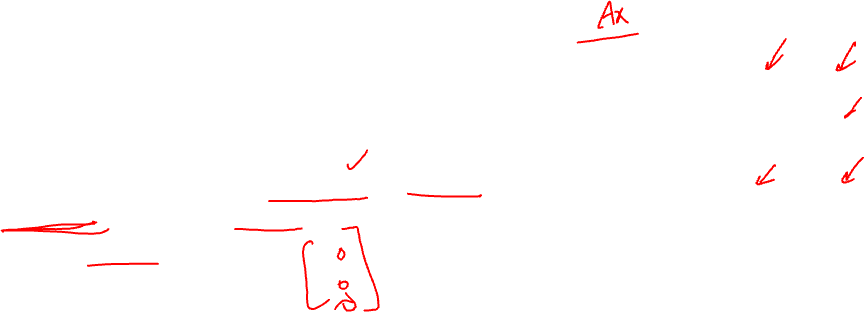 Ax
[0
0
0]